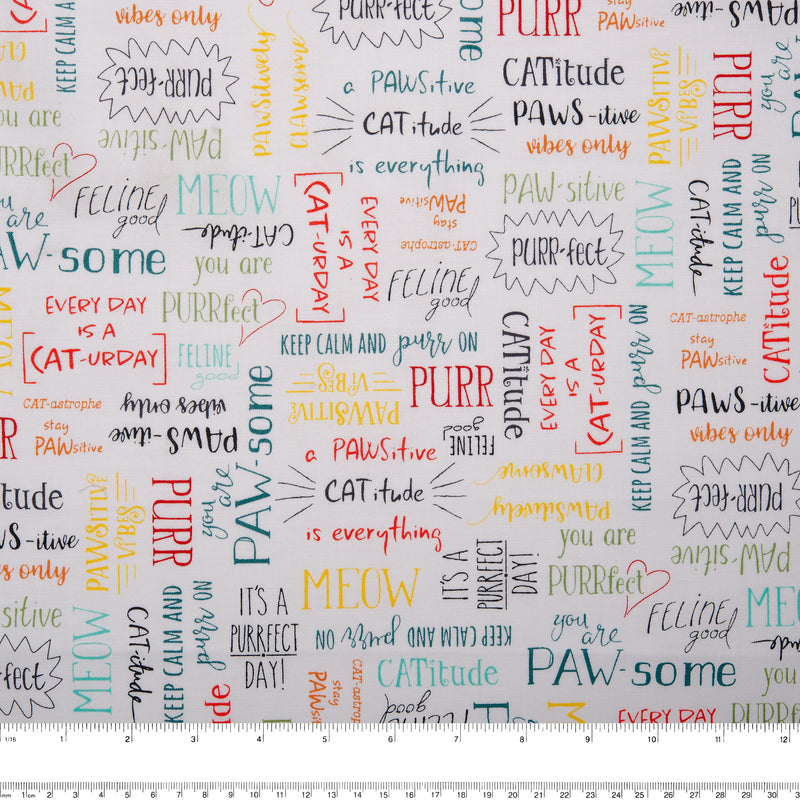 KEEP CALM AND
vibes only
PURR-fect
PURR
stay
PAWsitive
vibes only
PAWSitively
CLAWsome
a PAWSitive
CATitude
is everything
CATitude
PAWS-itive
vibes only
PAWSitive
VIBES
PURR
you are
PURR-fect
you are
PAW-sitive
PURRfect
FELINE
good
MEOW
CAT-itude
you are
PAW-some
you are
EVERY DAY
IS A
[CAT-URDAY]
stay
PAWsitive
CAT-astrophe
FELINE
good
PAW-sitive
PURR-fect
MEOW
CAT-itude
KEEP CALM AND
purr ON
EVERY DAY
IS A
[CAT-URDAY]
PURRfect
FELINE
good
KEEP CALM AND purr ON
CATitude
EVERY DAY
IS A
[CAT-URDAY]
KEEP CALM AND
purr ON
CAT-astrophe
stay
PAWsitive
CATitude
PAWS-itive
vibes only
MEOW
CAT-astrophe
stay
PAWsitive
PURR
PAWS-itive
vibes only
PAW-some
you are
PAWSitive
VIBES
PURR
FELINE
good
a PAWSitive
CATitude
is everything
CLAWsome
PAWSitively
PURR-fect
PAW-sitive
CATitude
PAWS-itive
vibes only
PAWSitive
VIBES
PURR
you are
PURRfect
IT'S A
PURRFECT
DAY!
MEOW
FELINE
good
MEOW
sitive
PURR-fect
MEOW
CAT-itude
KEEP CALM AND
purr ON
IT'S A
PURRFECT
DAY!
KEEP CALM AND purr ON
you
are
PAW-some
CATitude
stay
PAWsitive
CAT-astrop
FELINE
good
EVERY DAY
you
PURRf
1/16 1 2 3 4 5 6 7 8 9 10 11 12
mm 1cm 2 3 4 5 6 7 8 9 10 11 12 13 14 15 16 17 18 19 20 21 22 23 24 25 26 27 28 29 30